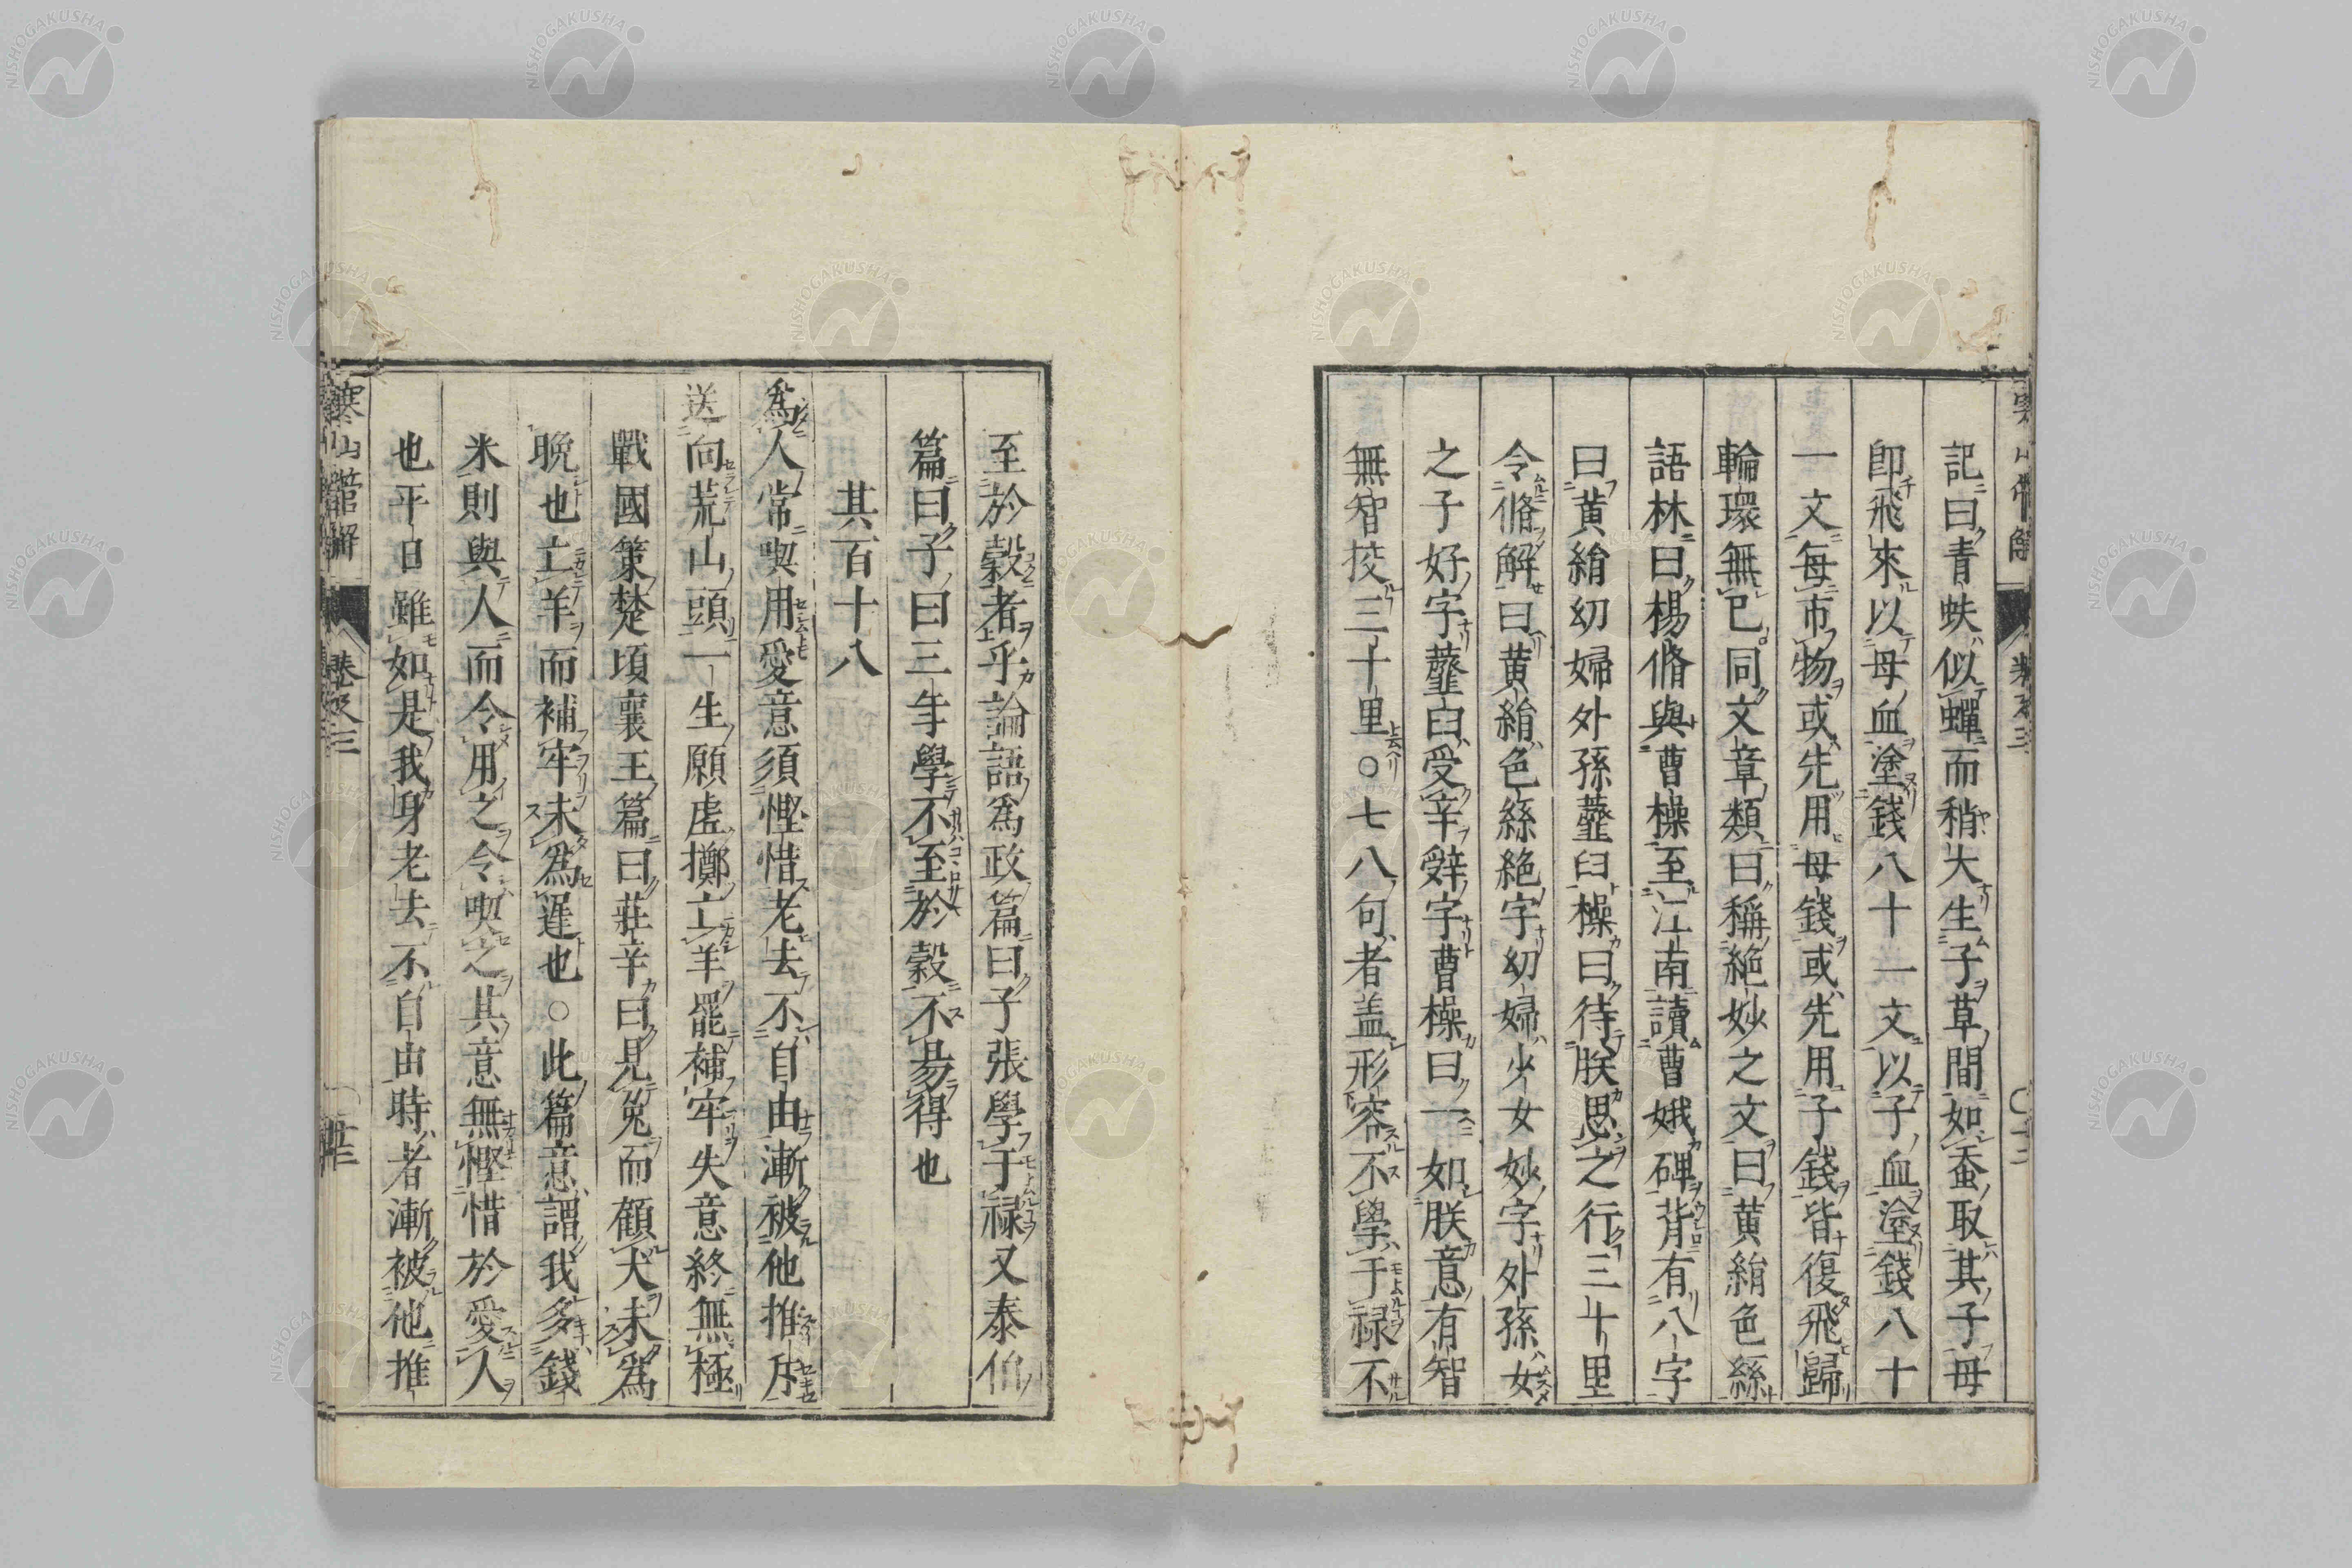 記曰青蚨似蟬而稍大生子草間如蚕取其子母
即飛來以母血塗錢八十一文以子血塗錢八十
一文每市物或先用母錢或先用子錢皆復飛歸
輪環無已同文章類曰稱絶妙之文曰黄絹色絲
語林曰楊脩與曹操至江南讀曹娥碑背有八字
曰黄絹幼婦外孫虀臼操曰待朕思之行三十里
令脩解曰黄絹色絲絶字幼婦少女妙字外孫女
之子好字虀臼受辛辤字曹操曰一如朕意有智
無智挍三十里○七八句者盖形容不學于禄不
至於穀者乎論語為政篇曰子張學于禄又泰伯
篇曰子曰三年學不至於穀不易得也
其百十八
為人常喫用愛意須慳惜老去不自由漸被他推斥
送向荒山頭一生願虚擲亡羊罷補牢失意終無極
戰國策楚頃襄王篇曰莊辛曰見兔而顧犬未為
晩也亡羊而補牢未為遲也○此篇意謂我多錢
米則與人而令用之令喫之其意無慳惜於愛人
也平日雖如是我身老去不自由時者漸被他推
寒山詩管解 卷之三
NISHOGAKUSHA